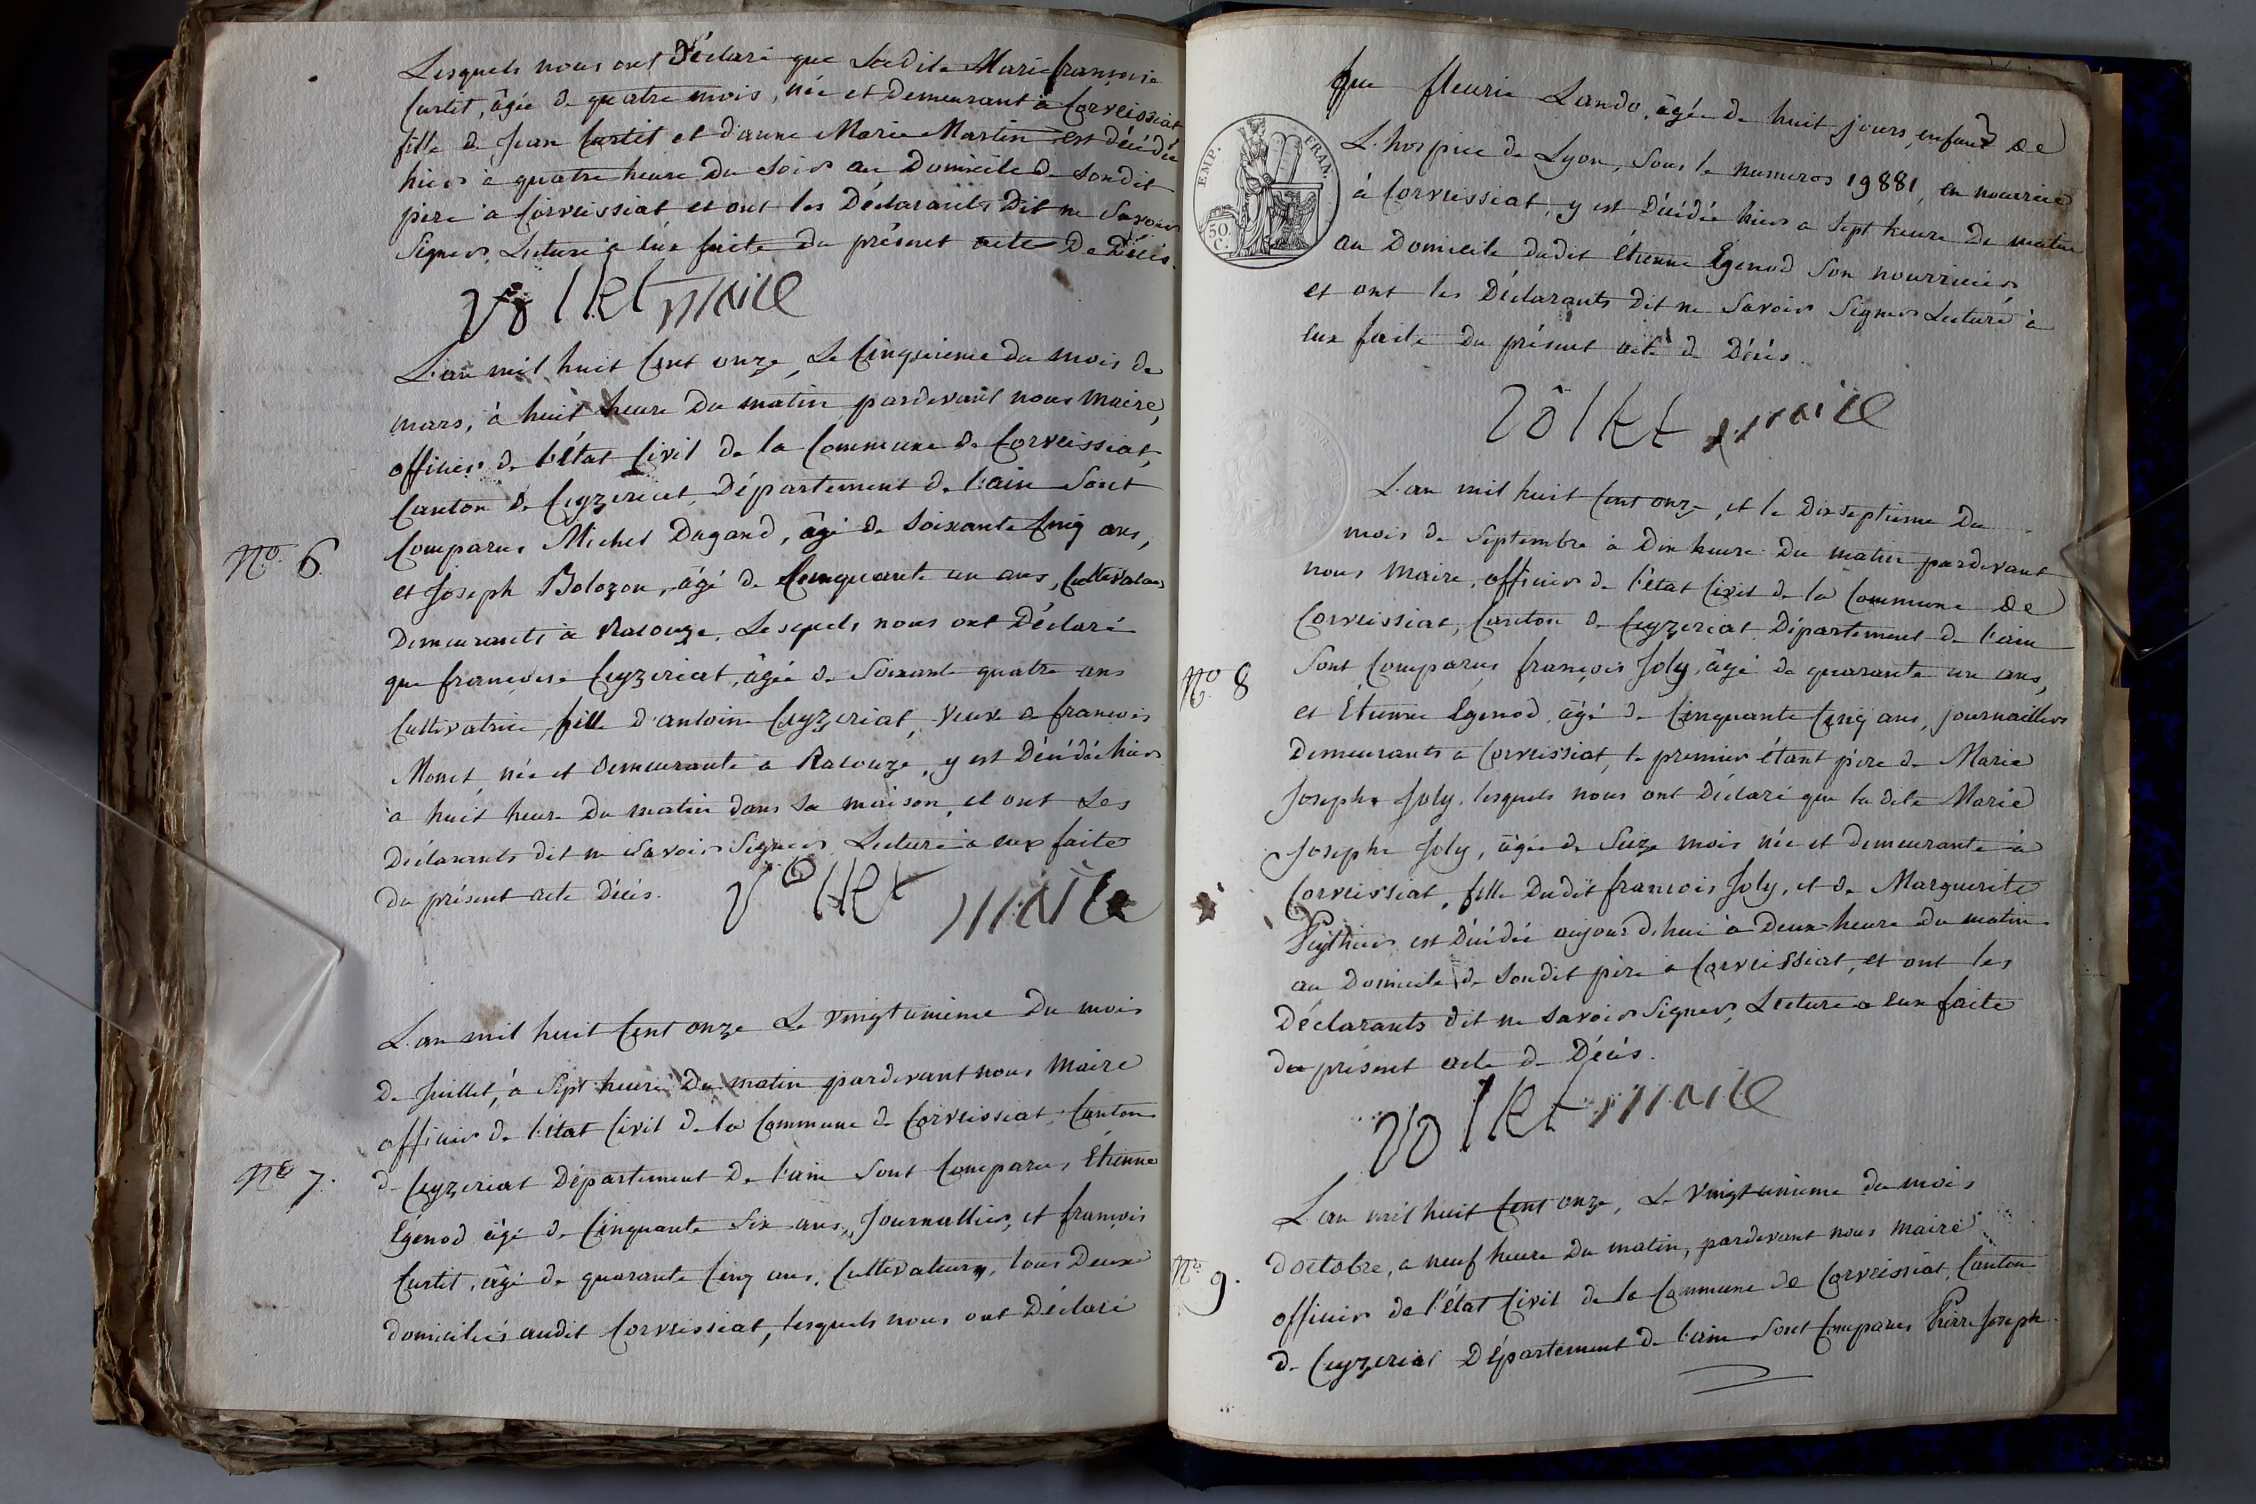 Lesquels nous ont Déclaré que Ladite Marie françoise
Curtit, âgée de quatre mois, née et Demeurant à Corveissiat
fille de Jean Curtit et d'anne Marie Martin est décédée
hier à quatre heure Du Soir au Domicile de Son dit
père à Corveissiat et ont les Déclarants Dit ne Savoir
Signer, Lecture à Eux faite du présent acte De Décès.
Volket maire
L'an mil huit Cent onze, Le Cinquieme du mois de
mars, à huit heure Du matin pardevant nous maire,
officier de l'état Civil de la Commune de Corveissiat,
Canton de Ceyzeriat, Département de l'ain Sont
N.º 6.
Comparus Michel Dagand, âgé de Soixante Cinq ans,
et Joseph Bolozon, âgé de Cinquante un ans, Cultivateurs
Demeurants à Racouze, Lesquels nous ont Déclaré
que françoise Ceyzeriat, âgée de Soixante quatre ans
Cultivatrice, fille d'antoine Ceyzeriat, veuve de francois
Monet, née et demeurante a Racouze, y est Décédée hier
a huit heure Du matin dans Sa maison, et ont Les
Déclarants dit ne Savoir Signer, Lecture à eux faite
du présent acte Décès.
Volket maire
L'an mil huit Cent onze Le vingt unieme Du mois
De Juillet, à Sept heure Du matin pardevant nous Maire
officier de l'état Civil de la Commune de Corveissiat, Canton
Nº 7.
de Ceyzeriat Département De l'ain Sont Comparus, Étienne
Egenod âgé de Cinquante Six ans, Journallier, et françois
Curtit, âgé de quarante Cinq ans, Cultivateurs, tous Deux
domiciliés audit Corveissiat, lesquels nous ont Déclaré
que fleurie Lando, âgée de huit jours, enfant de
L'hospice de Lyon, Sous le numeros 19881, en nourrice
EMP. FRAN.
50 C.
à Corveissiat, y est Décédée hier a Sept heure Du matin
au Domicile dudit Étienne Egenod Son nourricier
et ont les Déclarants Dit ne Savoir Signer Lecture à
Eux faite du présent acte de Décès.
Volket maire
L'an mil huit Cent onze, et le Dix septieme Du
mois de Septembre à Dix heure Du matin pardevant
nous Maire, officier de l'état Civil de la Commune de
Corveissiat, Canton de Ceyzeriat Département de l'ain
Nº 8
Sont Comparus françois Joly, âgé de quarante un ans,
et Étienne Egenod, âgé de Cinquante Cinq ans, journailliers
Demeurants à Corveissiat, le premier étant père de Marie
Josephe Joly, lesquels nous ont Déclaré que la dite Marie
Josephe Joly, âgée de Seize mois née et demeurante à
Corveissiat, fille Dudit francois Joly, et de Marguerite
est Décédée aujourd'hui à Deux heure du matin
au Domicile de Sondit père a Corveissiat, et ont les
Déclarants dit ne Savoir Signer, Lecture a Eux faite
du présent acte de Décès.
Volket maire
L'an mil huit Cent onze, Le Vingt unieme du mois
Nº 9.
D'octobre, a neuf heure du matin, pardevant nous Maire
officier de l'état Civil de la Commune de Corveissiat, Canton
de Ceyzeriat Département de l'ain Sont Comparus Pierre Joseph